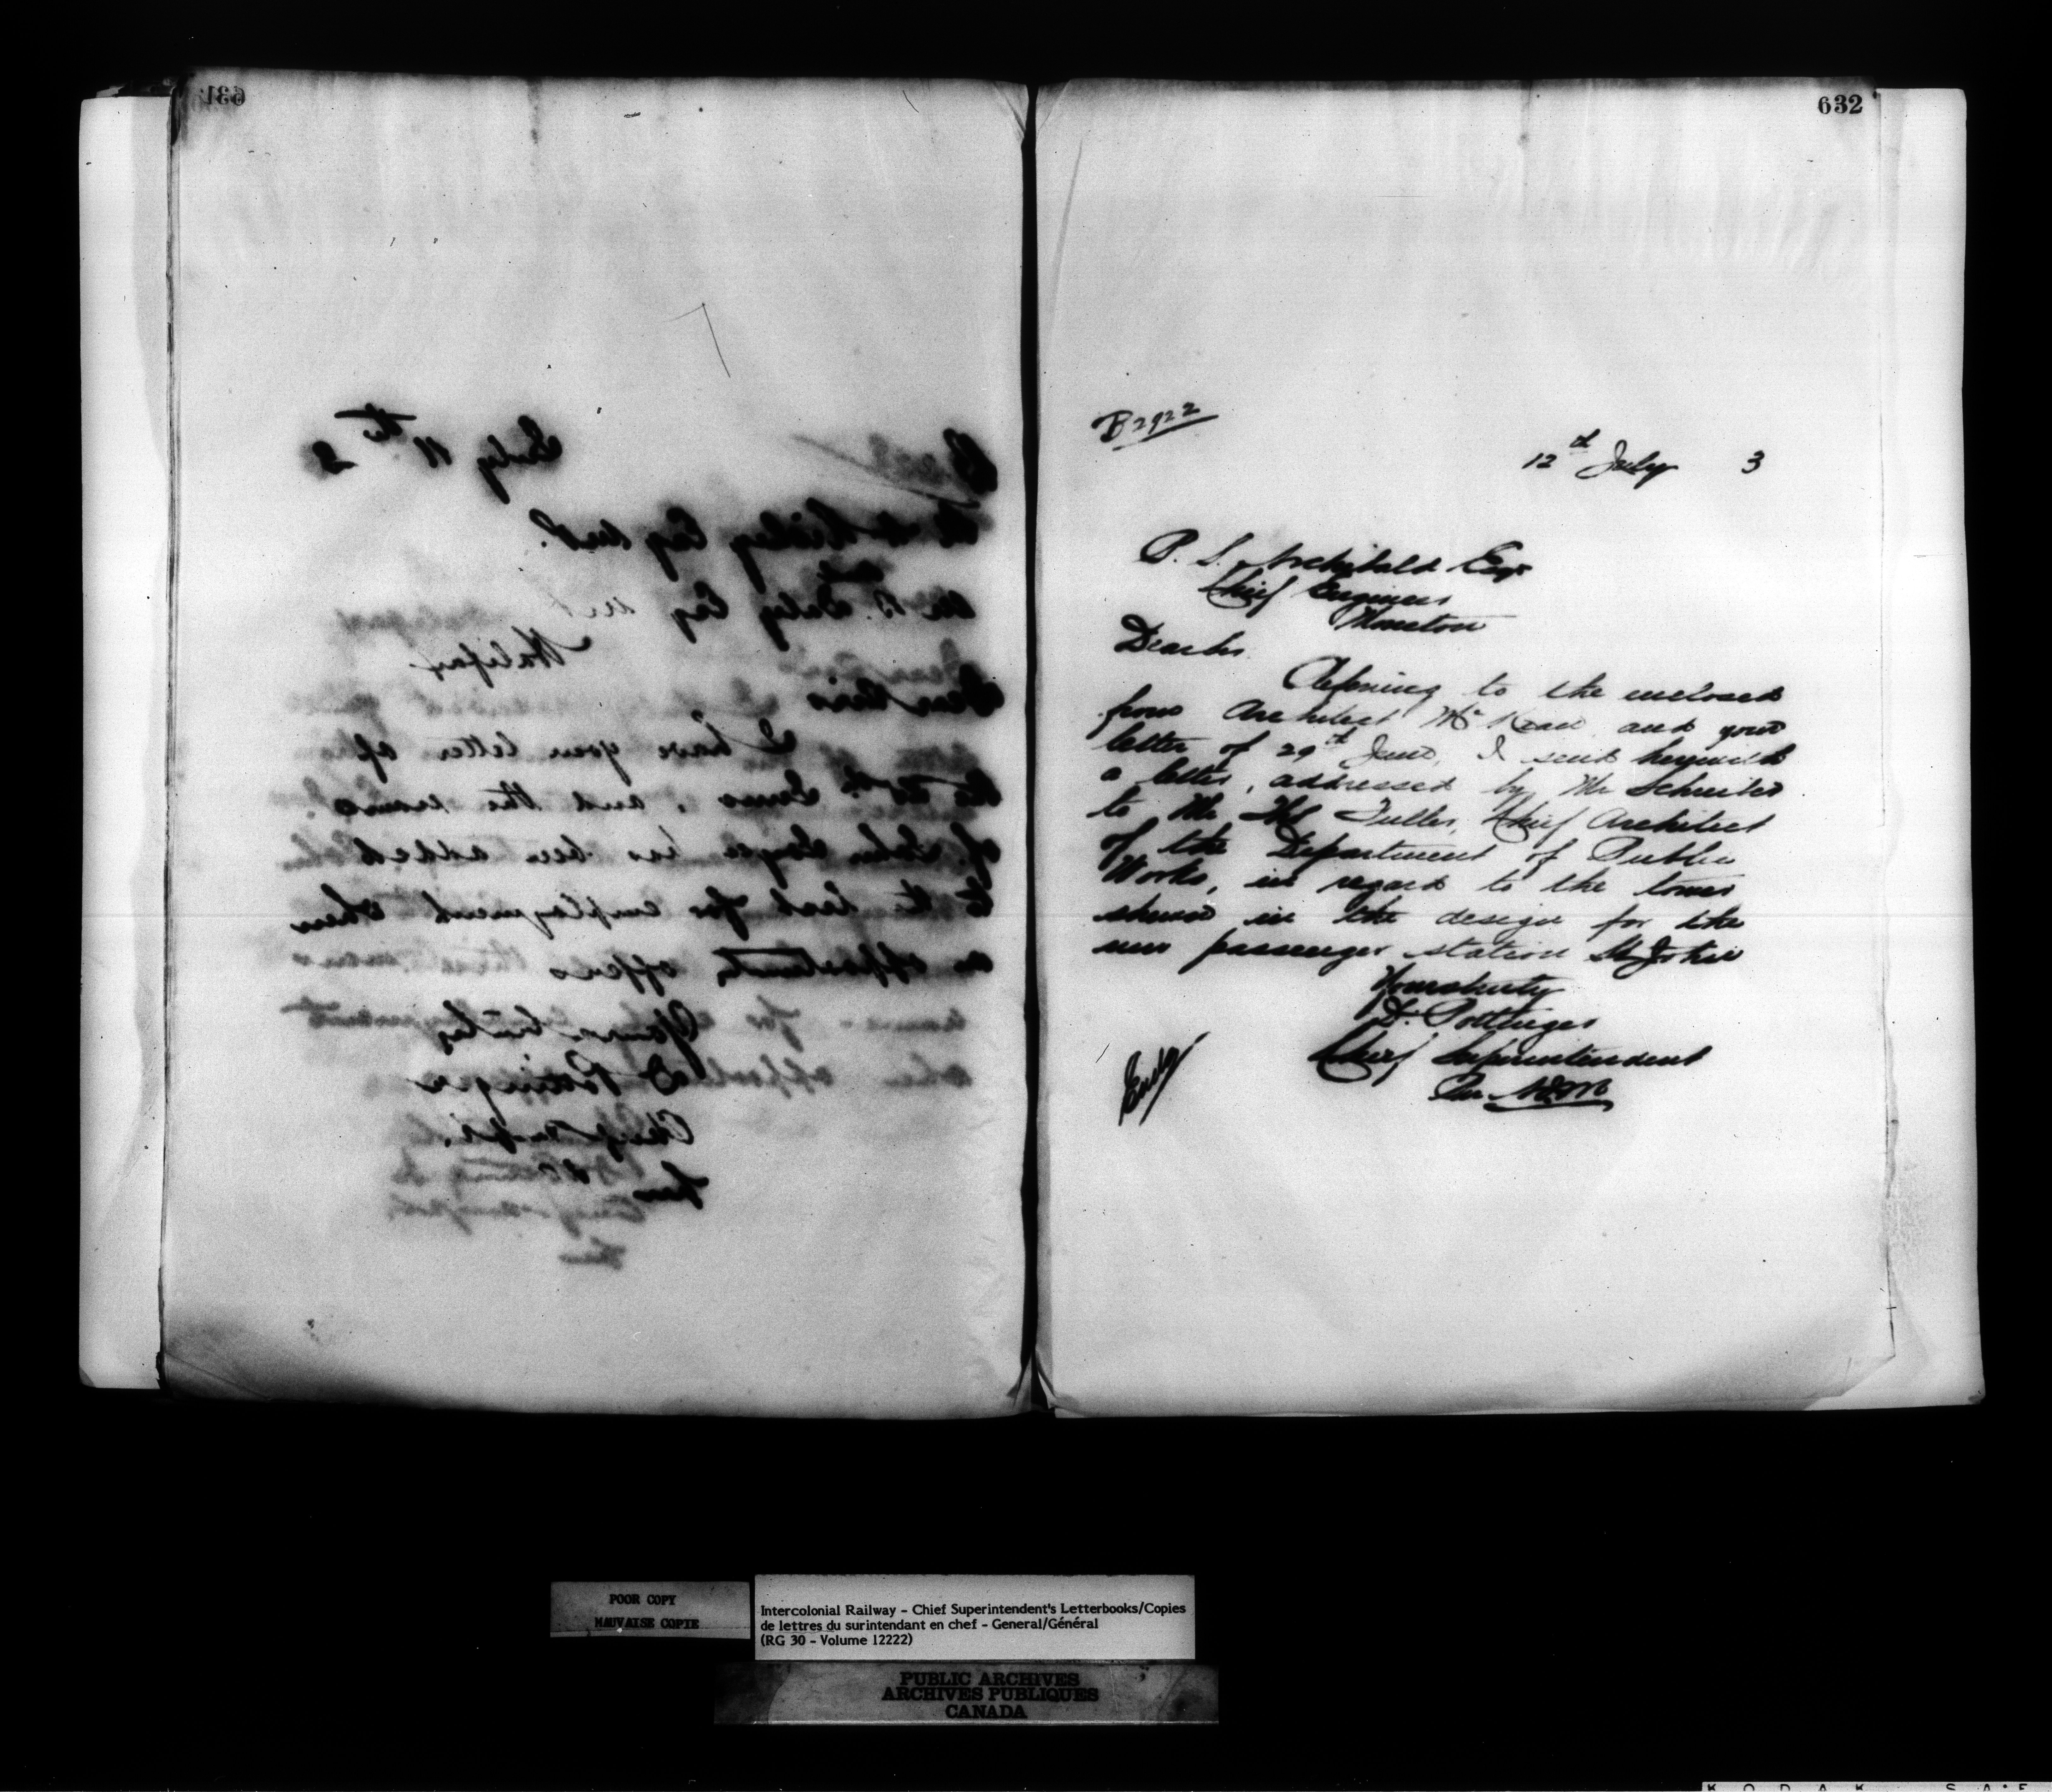 631
July 11th 3
Esq Supt.
and
B. Daley Esq
Halifax
Dear Sirs
I have your letter of
the 20th June, and the name
of John has been added
to the list for employment when
an opportunity offers
Yours truly
D Pottinger
Chief Supt.
Per
632
B2922
12th July 3
P. S. Archibald Esqr
Chief Engineer
Moncton
Dear Sir
Referring to the enclosed
from Architect McKean and your
letter of 29th June, I send herewith
a letter, addressed by Mr Schreiber
to Mr Thos Fuller, Chief Architect
of the Department of Public
Works, in regard to the tower
shown in the design for the
new passenger station St John
Yours truly
D. Pottinger
Chief Superintendent
Per
Encl
POOR COPY
MAUVAISE COPIE
Intercolonial Railway - Chief Superintendent's Letterbooks/Copies
de lettres du surintendant en chef - General/Général
(RG 30 - Volume 12222)
PUBLIC ARCHIVES
ARCHIVES PUBLIQUES
CANADA